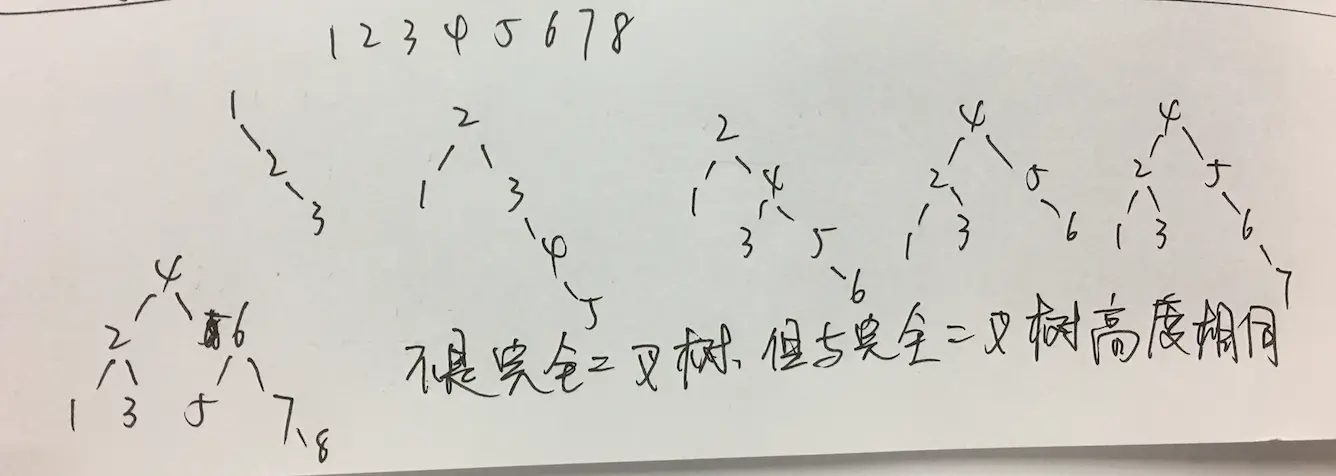 1 2 3 4 5 6 7 8
1 2 4 4
2 2 4 2 5 2 5
1 3 1 3 6
3 3 5 1 3 6 1 3
4 4 6 7
2 6 5
1 3 5 7 8
不是完全二叉树、但与完全二叉树高度相同